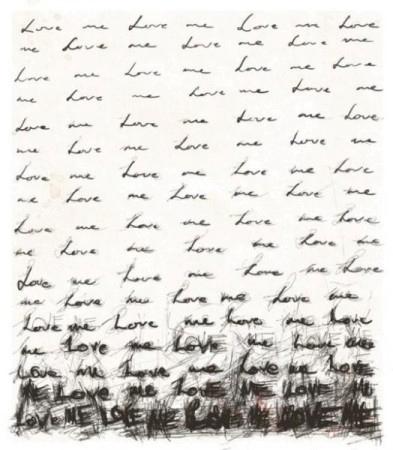 Love me Love me Love me Love
me Love me Love me Love me
Love me Love me Love me Love
me Love me Love me Love me
Love me Love me Love me Love
me Love me Love me Love me
Love me Love me Love me Love
me Love me Love me Love me
Love me Love me Love me Love
me Love me Love me Love me
Love me Love me Love me Love
me Love me Love me Love me
Love me Love me Love me Love
me Love me LOVE me Love me
Love me Love me Love me Love
ME Love me Love ME LOVE ME
LOVE ME LOVE ME LOVE ME LOVE ME